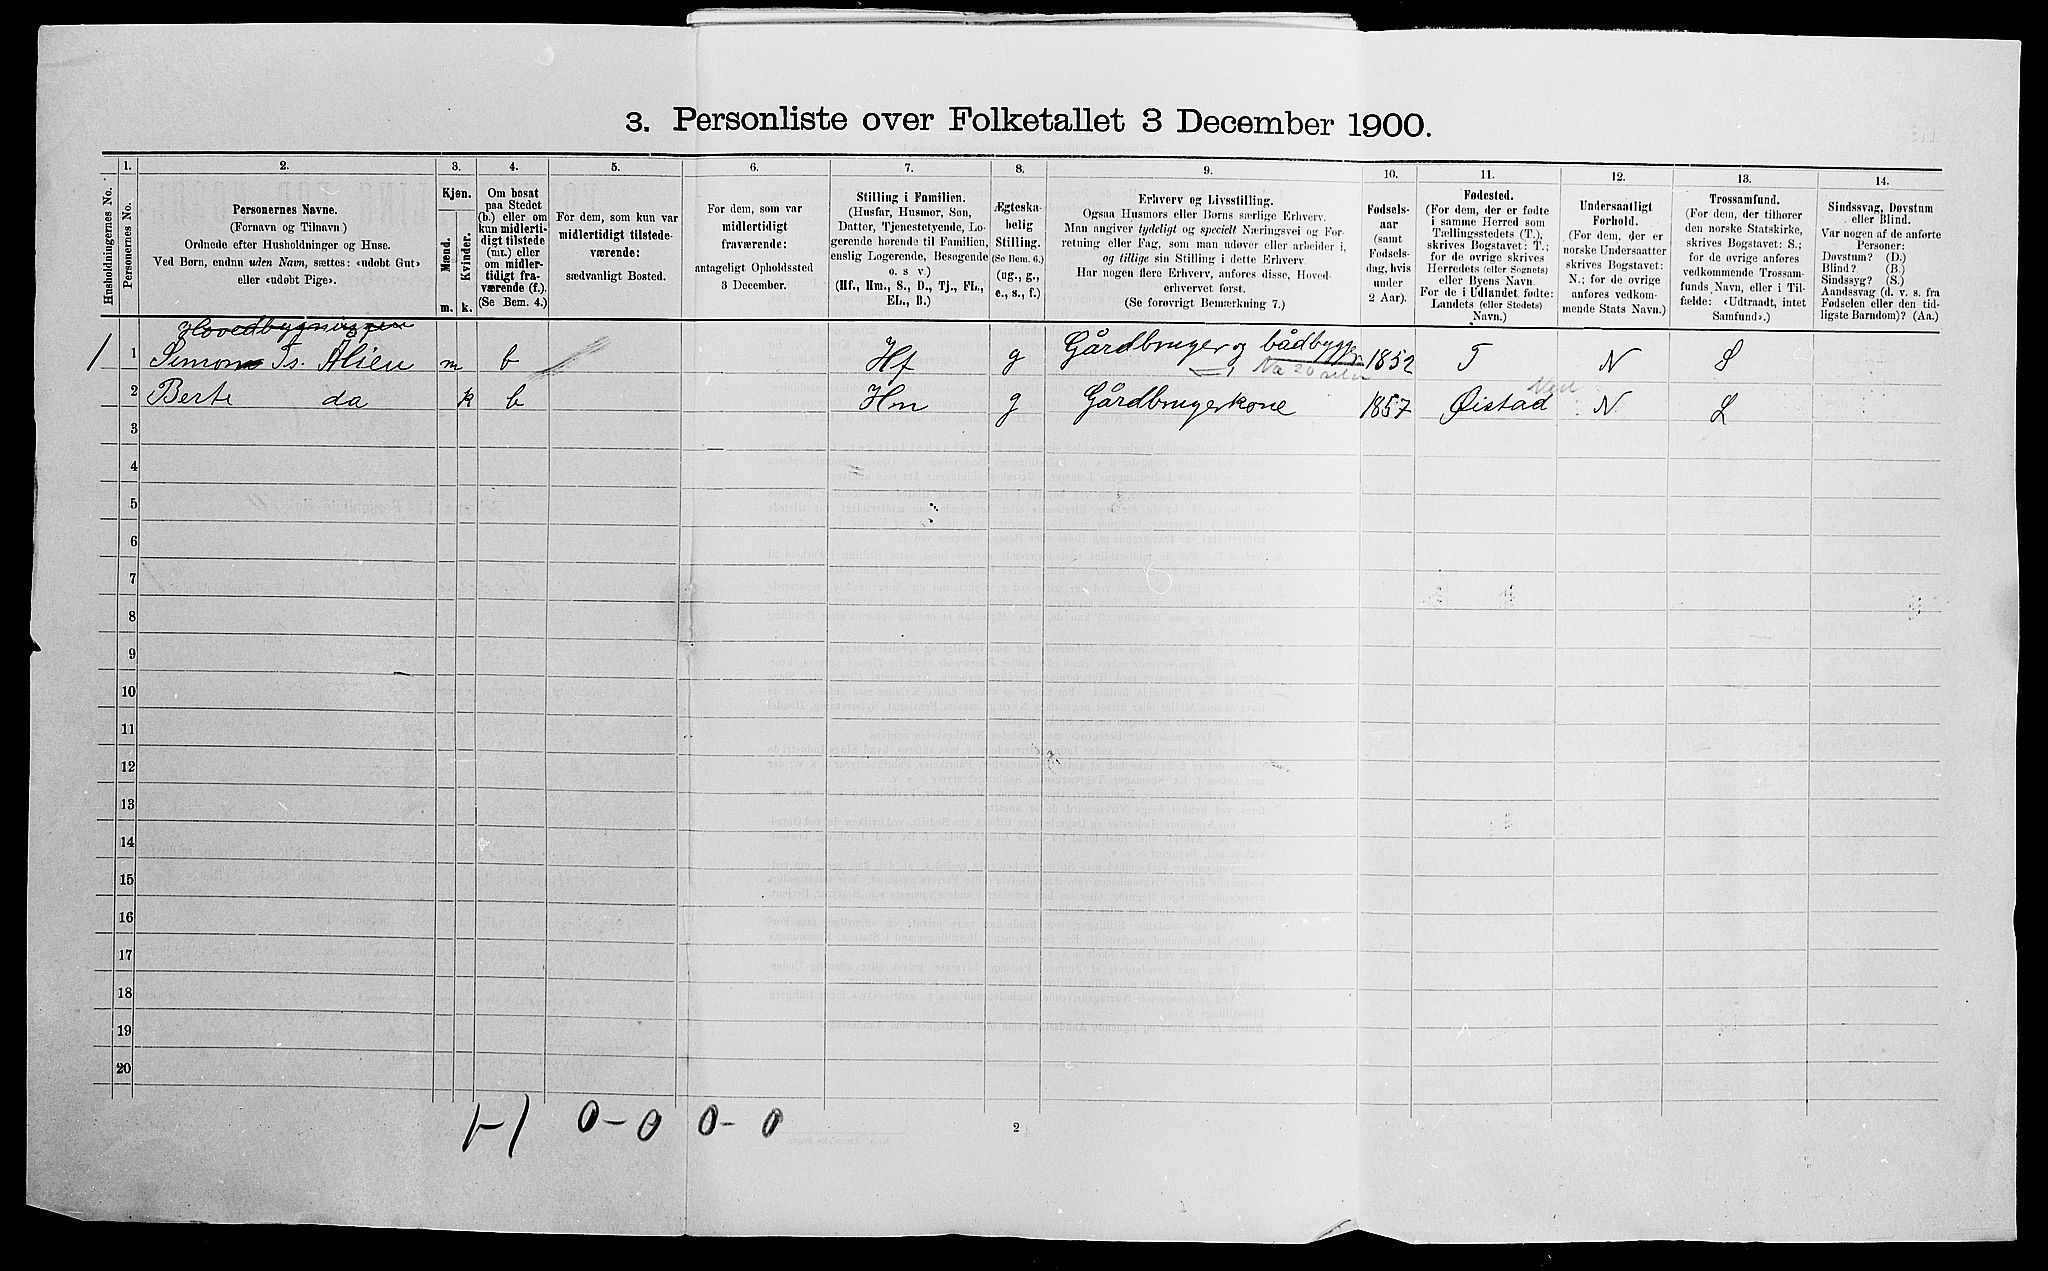 3. Personliste over Folketallet 3 December 1900.
Husholdningernes No.
1.
Personernes No.
2.
Personernes Navne.
(Fornavn og Tilnavn)
Ordnede efter Husholdninger og Huse.
Ved Børn, endnu uden Navn, sættes: «udøbt Gut»
eller «udøbt Pige».
3.
Kjøn.
Mænd.
Kvinder.
m. k.
4.
Om bosat
paa Stedet
(b.) eller om
kun midlerti-
digt tilstede
(mt.) eller
om midler-
tidigt fra-
værende (f.).
(Se Bem. 4.)
5.
For dem, som kun var
midlertidigt tilstede-
værende:
sædvanligt Bosted.
6.
For dem, som var
midlertidigt
fraværende:
antageligt Opholdssted
3 December.
7.
Stilling i Familien.
(Husfar, Husmor, Søn,
Datter, Tjenestetyende, Lo-
gerende hørende til Familien,
enslig Logerende, Besøgende
o. s v.)
(Hf., Hm., S., D., Tj., FL.,
EL., B.)
8.
Ægteska-
belig
Stilling.
(Se Bem. 6.)
(ug., g.,
e., s., f.)
9.
Erhverv og Livsstilling.
Ogsaa Husmors eller Børns særlige Erhverv.
Man angiver tydeligt og specielt Næringsvei og For-
retning eller Fag, som man udøver eller arbeider i,
og tillige sin Stilling i dette Erhverv.
Har nogen flere Erhverv, anføres disse, Hoved-
erhvervet først.
(Se forøvrigt Bemærkning 7.)
10.
Fødsels-
aar
(samt
Fødsels-
dag, hvis
under
2 Aar).
11.
Fødested.
(For dem, der er fødte
i samme Herred som
Tællingsstedets (T.),
skrives Bogstavet: T.;
for de øvrige skrives
Herredets (eller Sognets)
eller Byens Navn.
For de i Udlandet fødte:
Landets (eller Stedets)
Navn.)
12.
Undersaatligt
Forhold.
(For dem, der er
norske Undersaatter
skrives Bogstavet:
N.; for de øvrige
anføres vedkom-
mende Stats Navn.)
13.
Trossamfund.
(For dem, der tilhører
den norske Statskirke,
skrives Bogstavet: S.;
for de øvrige anføres
vedkommende Trossam-
funds Navn, eller i Til-
fælde: «Udtraadt, intet
Samfund».)
14.
Sindssvag, Døvstum
eller Blind.
Var nogen af de anførte
Personer:
Døvstum? (D.)
Blind? (B.)
Sindssyg? (S.)
Aandssvag (d. v. s. fra
Fødselen eller den tid-
ligste Barndom)? (Aa.)
Hovedbygningen
1 1 Simon Ts. Alien m b Hf g Gårdbruger og bådbygger 1852 T N S
2 Berte da k b Hm g Gårdbrugerkone 1857 Øistad N L
3
4
5
6
7
8
9
10
11
12
13
14
15
16
17
18
19
20
1-1 0-0 0-0
2